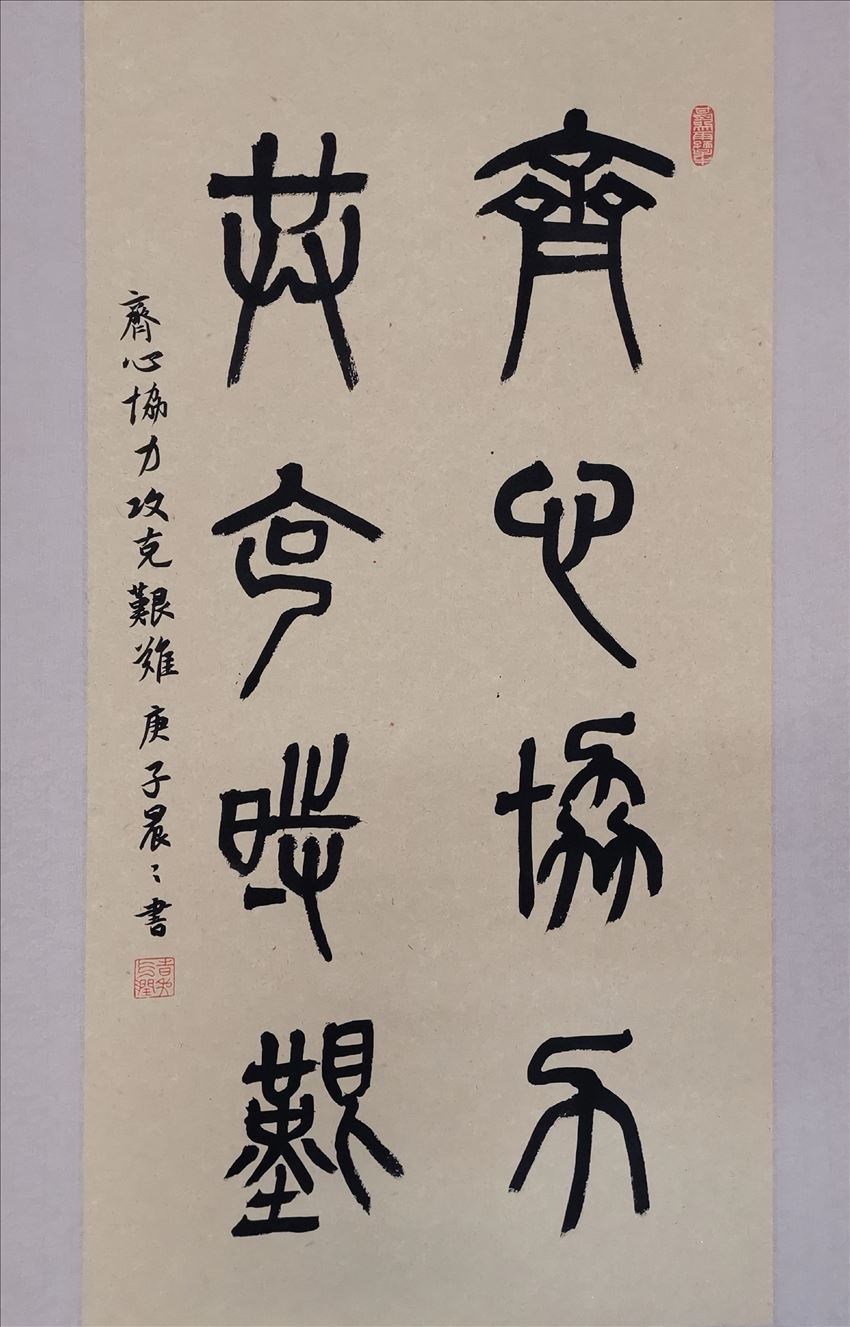 齊心協力
共克時艱
齊心協力攻克艱難 庚子晨〻書